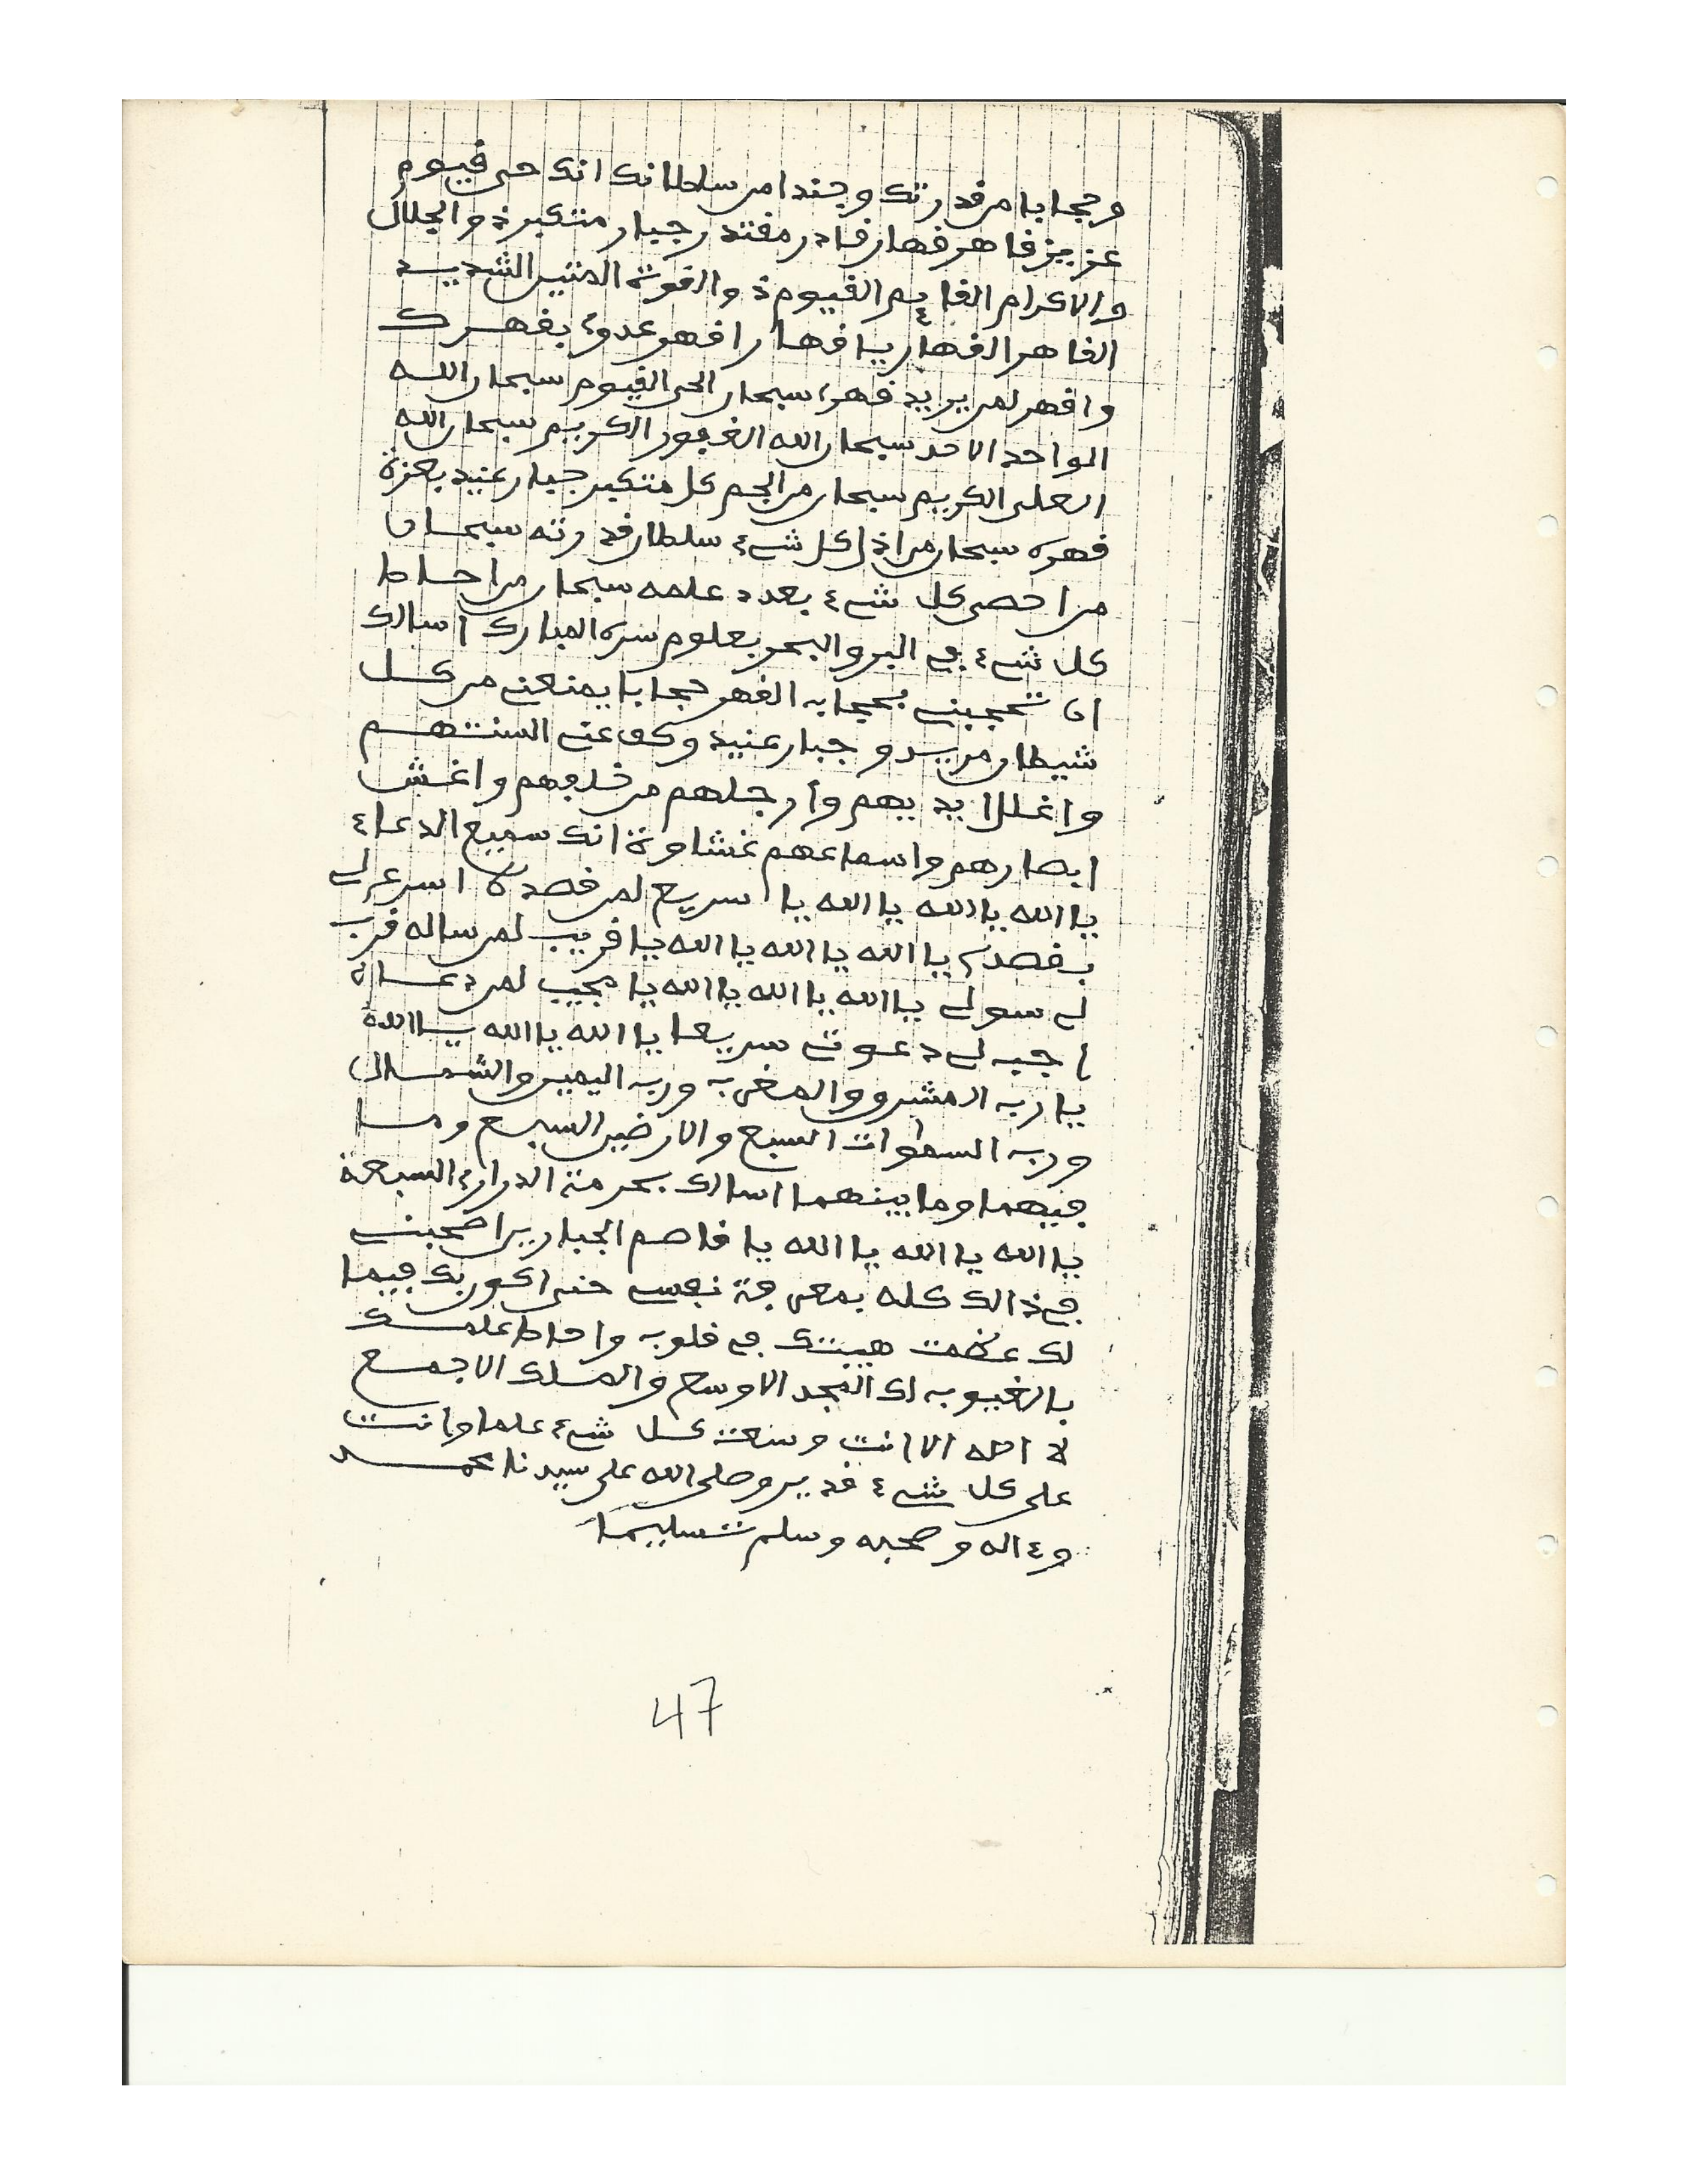 وحجابا من قدرتك وجندا من سلطانك انك حي قيوم
عزيز قاهر قهار قادر مقتدر جبار متكبر ذو الجلال
والاكرام القايم القيوم ذو القوة المتين الشديد
القاهر القهار يا قهار اقهر عدوي بقهرك
واقهر لمن يريد قهري سبحان الحي القيوم سبحان الله
الواحد الاحد سبحان الله الغفور الكريم سبحان الله
العلي الكريم سبحان من الجم كل متكبر جبار عنيد بعزة
قهره سبحان من اذل كل شيء سلطان قدرته سبحان
من احصى كل شيء بعدد علمه سبحان من احاط
كل شيء في البر والبحر بعلوم سره المبارك اسالك
ان تحجبني بحجاب القهر حجابا يمنعني من كل
شيطان مريد وجبار عنيد وكف عني السنتهم
واغلل ايديهم وارجلهم من خلفهم واغش
ابصارهم واسماعهم غشاوة انك سميع الدعاء
يا الله يا الله يا الله يا سريع لمن قصده اسرع لي
بقصدي يا الله يا الله يا الله يا قريب لمن ساله قرب
لي سولي يا الله يا الله يا الله يا مجيب لمن دعاه
اجب لي دعوتي سريعا يا الله يا الله يا الله
يا رب المشرق والمغرب ورب اليمين والشمال
ورب السموات السبع والارضين السبع وما
فيهما وما بينهما اسالك بحرمة الدراري السبعة
يا الله يا الله يا الله يا قاصم الجبارين اصحبني
في ذالك كله بمعرفة نفسي حتى اكون بك فيما
لك عظمت هيبتك في قلوب واحاط علمك
بالغيوب لك المجد الاوسع والملك الاجمع
لا اله الا انت وسعت كل شيء علما وانت
على كل شيء قدير وصلى الله على سيدنا محمد
وءاله وصحبه وسلم تسليما
47